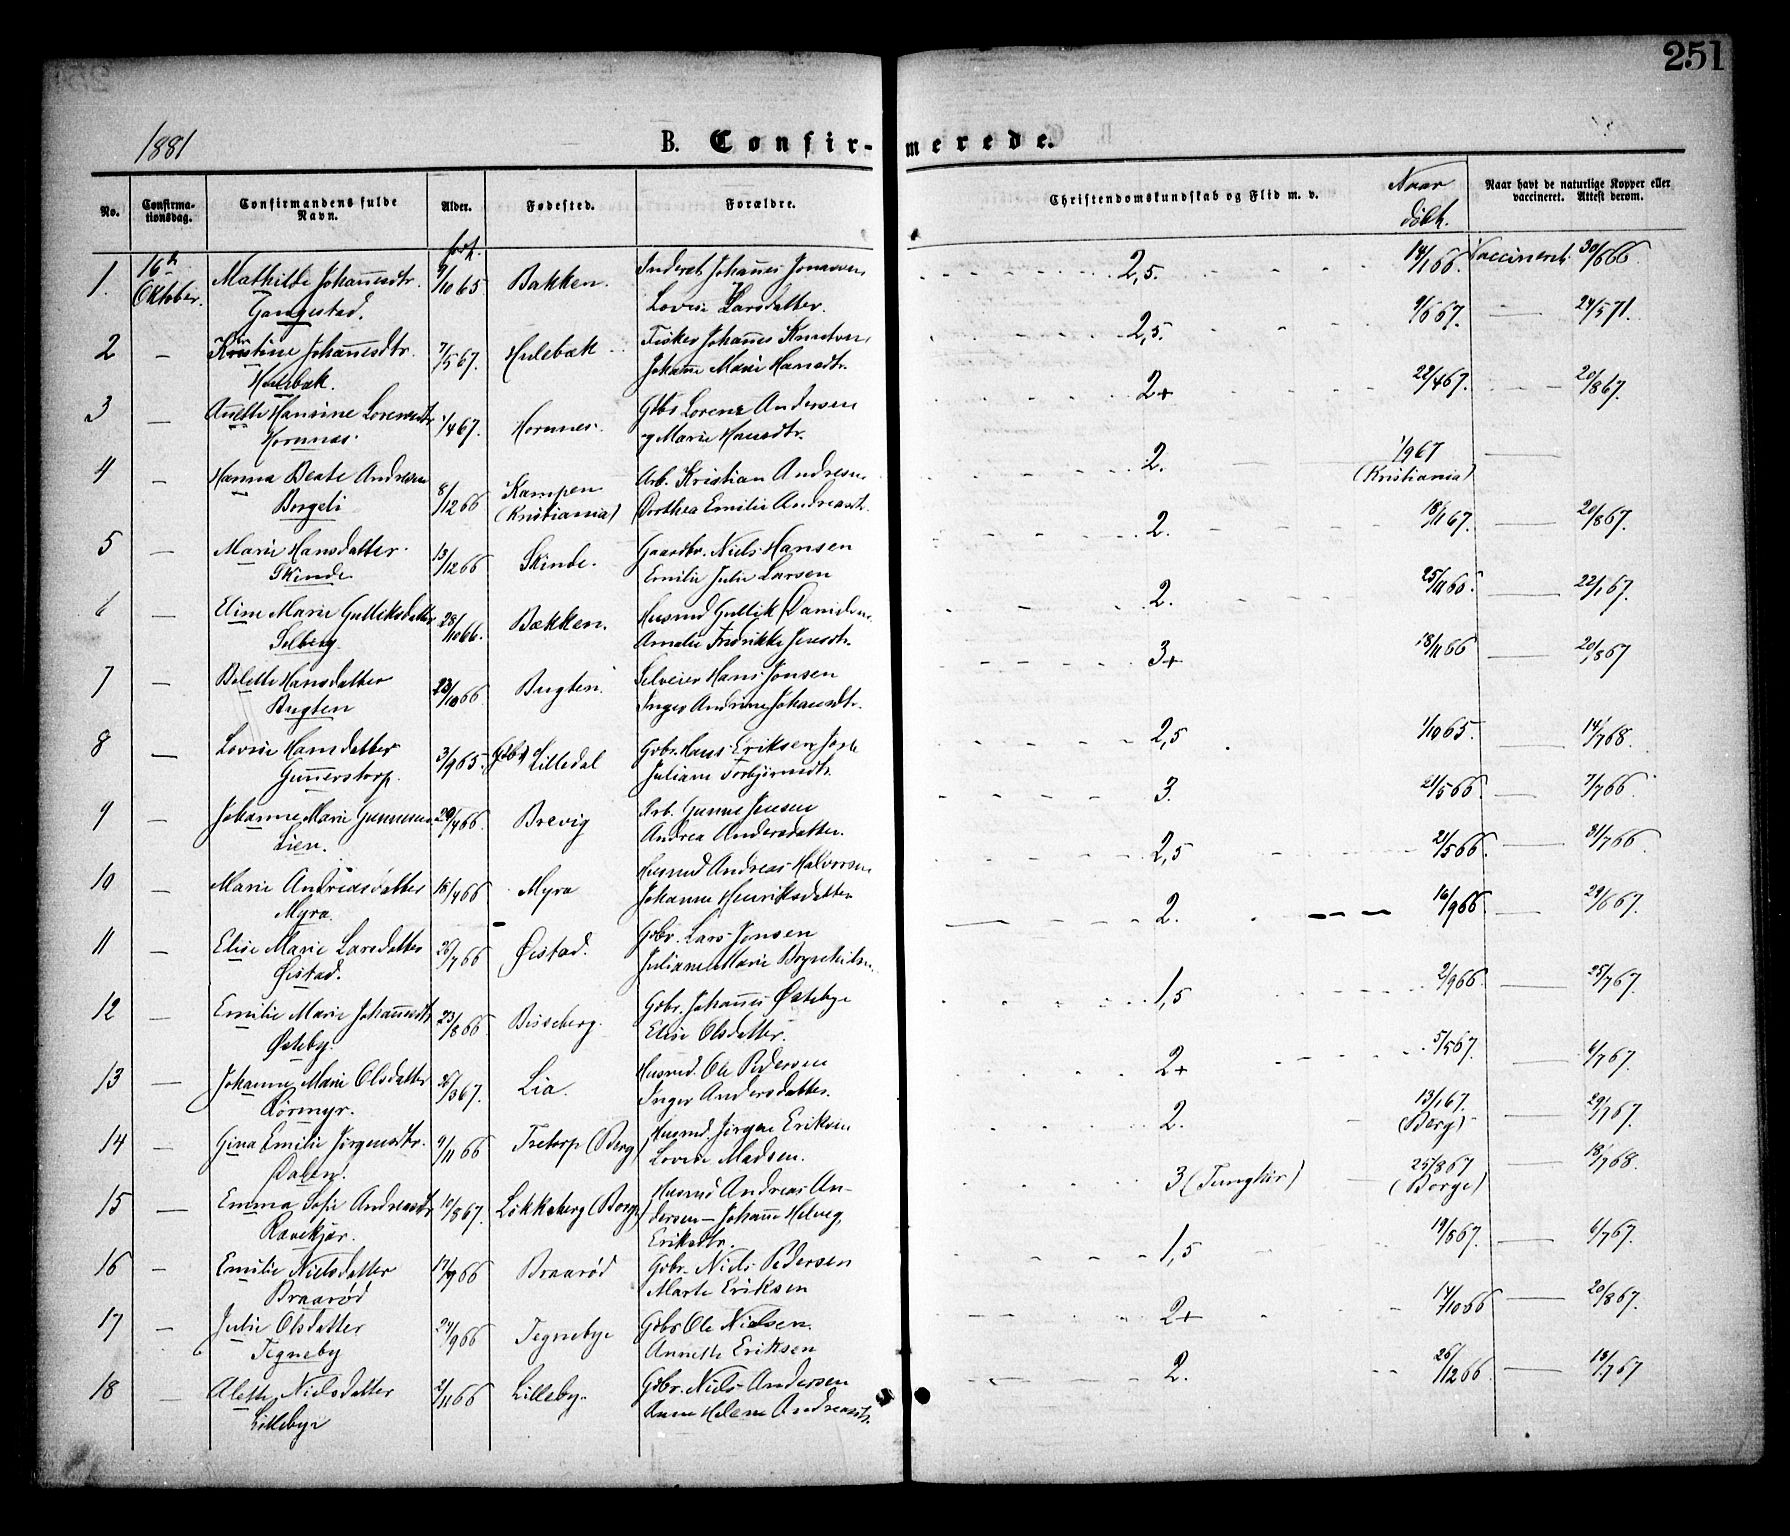 251
1881
B. Confir- merede.
No.
Confirma-
tionsdag.
Confirmandens fulde
Navn.
Alder.
Fødested.
Forældre.
Christendomskundskab og Flid m. v.
Naar
døbt.
Naar havt de naturlige Kopper eller
vaccineret. Attest derom.
født.
1. 16de Mathilde Johannesdtr. 9/10 65 Bakken. Inderst Johannes Jonassen 2,5. 14/1 66. Vaccineret 30/6 66.
Oktober. Gangestad. Lovise Larsdatter.
2 — Kristine Johannesdtr. 7/5 67. Hulebæk Fisker Johannes Knutsen 2,5. 9/6 67. — 24/5 71.
Hulebæk. Johanne Marie Hansdtr.
3 — Anette Hansine Lorenzdtr 1/4 67. Hornnes. Gbr. Lorenz Andersen 2+ 22/4 67. — 20/8 67.
Hornnæs. og Marie Hansdtr.
4 — Hanna Beate Andresen 8/12 66 Kampen Arb. Kristian Andresen 2. 1/9 67 —
Borgeli (Kristiania) Dorthea Emilie Andreasdt. (Kristiania)
5 — Marie Hansdatter. 13/12 66 Skinde. Gaardbr. Niels Hansen 2. 18/1 67. — 20/8 67.
Skinde Emilie Julie Larsen
6 — Eline Marie Gulliksdatter 28/10 66. Bækken. Husmd Gullik Danielsen 2. 25/11 66. — 22/1 67.
Solberg. Amalie Fredrikke Jensdtr.
7 — Bolette Hansdatter 23/10 66. Bugten. Selveier Hans Jonsen 3+ 18/11 66 — 20/8 67
Bugten Inger Andrine Johansdtr.
8 — Lovise Hansdatter 3/9 65. Lilledal Gbr. Hans Eriksen 2,5 1/10 65. — 14/7 68.
Gunnerstorp. Juliane Torbjørnsdtr.
9 — Johanne Marie Gunnersen 20/4 66. Brevig Arb. Gunne Jensen 3. 21/5 66. — 7/7 66.
Lien. Andrea Andersdatter.
10 — Marie Andreasdatter 15/4 66 Myra Husmd Andreas Halvorsen 2,5 21/5 66. — 31/7 66.
Myra. Johanne Henriksdatter
11 — Elise Marie Larsdatter 26/7 66 Øistad. Gbr. Lars Jensen 2. 16/9 66. — 29/6 67.
Øistad. Juliane Marie
12 — Emilie Marie Johannesdtr 23/8 66 Bisseberg. Gbr. Johannes Østebye 1,5 2/9 66. — 25/7 67.
Østeby. Elise Olsdatter.
13 — Johanne Marie Olsdatter 26/3 67. Lia. Husmd. Ole Pedersen 2+ 5/5 67. — 6/7 67.
Rörmyr. Inger Andersdatter.
14 — Gina Emilie Jørgensdtr. 9/11 66 Tretorp (Berg) Husmd. Jørgen Eriksen 2. 13/1 67. — 29/7 67.
Dalen. Lovise Madsen. (Berg)
15 — Emma Sofie Andreasdtr 12/8 67. Løkkeberg (Borge) Husmd Andreas An- 3 (Tunghør) 25/8 67 — 18/7 68.
Ravekjær. dersen — Johanne Helveg (Borge)
Eriksdtr.
16 — Emilie Nielsdatter 17/7 66 Braarød Gbr. Niels Pedersen 1,5 19/8 67. — 6/7 67.
Braarød Marte Eriksen
17 — Julie Olsdatter 24/9 66 Tegnebye Gbr Ole Nielsen. 2+ 14/10 66 — 20/8 67.
Tegneby Annette Eriksen
18 — Alette Nielsdatter 2/11 66 Lilleby. Gbr. Niels Andersen 2. 26/12 66 — 18/7 67
Lillebye Anne Helene Andreasdtr.